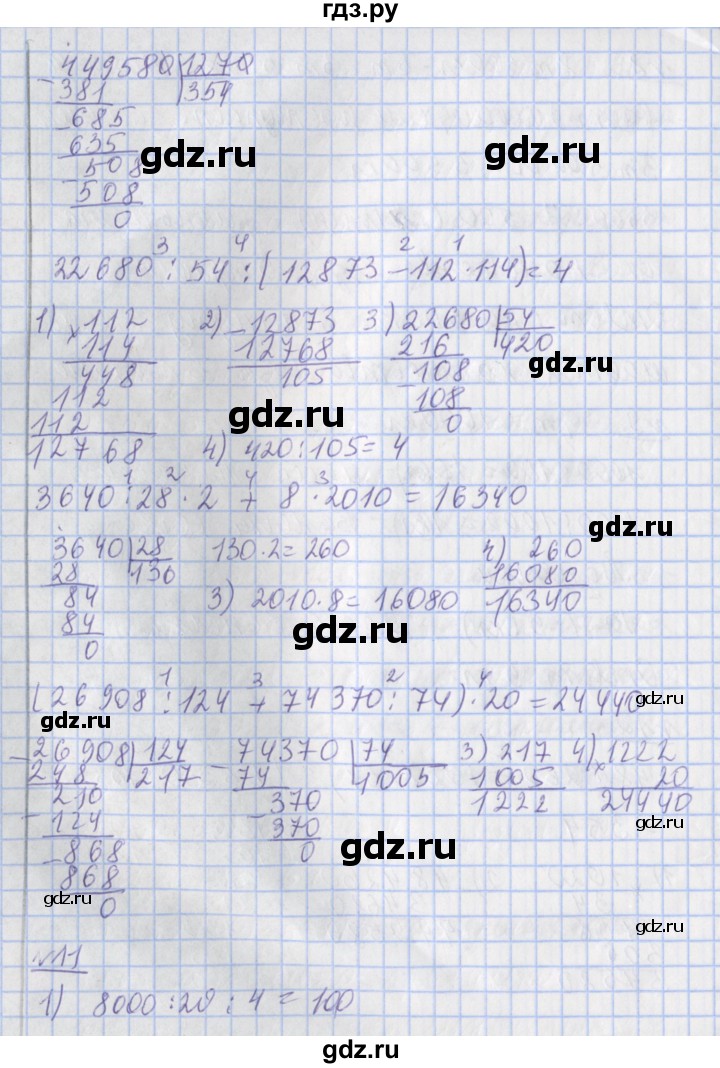 гдз.ру
449580 1270
- 381 354
- 685
635
- 508
508
0
gdz.ru gdz.ru
3 4 2 1
22680 : 54 : ( 12873 - 112 · 114) = 4
1) × 112 2) - 12873 3) 22680 54
114 12768 216 420
448 105 - 108
112 108
112 0
12768 4) 420 : 105 = 4
gdz.ru gdz.ru
1 2 4 3
3640 : 28 · 2 + 8 · 2010 = 16340
gdz.ru
3640 28 130 · 2 = 260 4) 260
28 130 16080
84 3) 2010 · 8 = 16080 16340
84
0
gdz.ru gdz.ru
1 3 2 4
(26908 : 124 + 74370 : 74) · 20 = 24440
gdz.ru gdz.ru
- 26908 124 - 74370 74 3) 217 4) × 1222
248 217 74 1005 1005 20
210 370 1222 24440
- 124 - 370
- 868 0
868
0
gdz.ru gdz.ru gdz.ru
№11
1) 8000 : 20 : 4 = 100
gdz.ru gdz.ru
gdz.ru